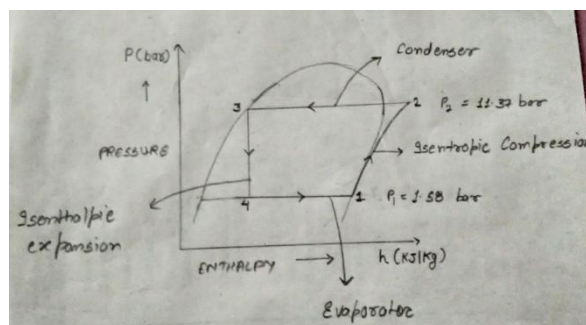 P(bar)
↑
PRESSURE
Condenser
3
2
P₂ = 11.37 bar
Isentropic Compression
Isenthalpic
expansion
4
1
P₁ = 1.58 bar
ENTHALPY
h (KJ/Kg)
Evaporator